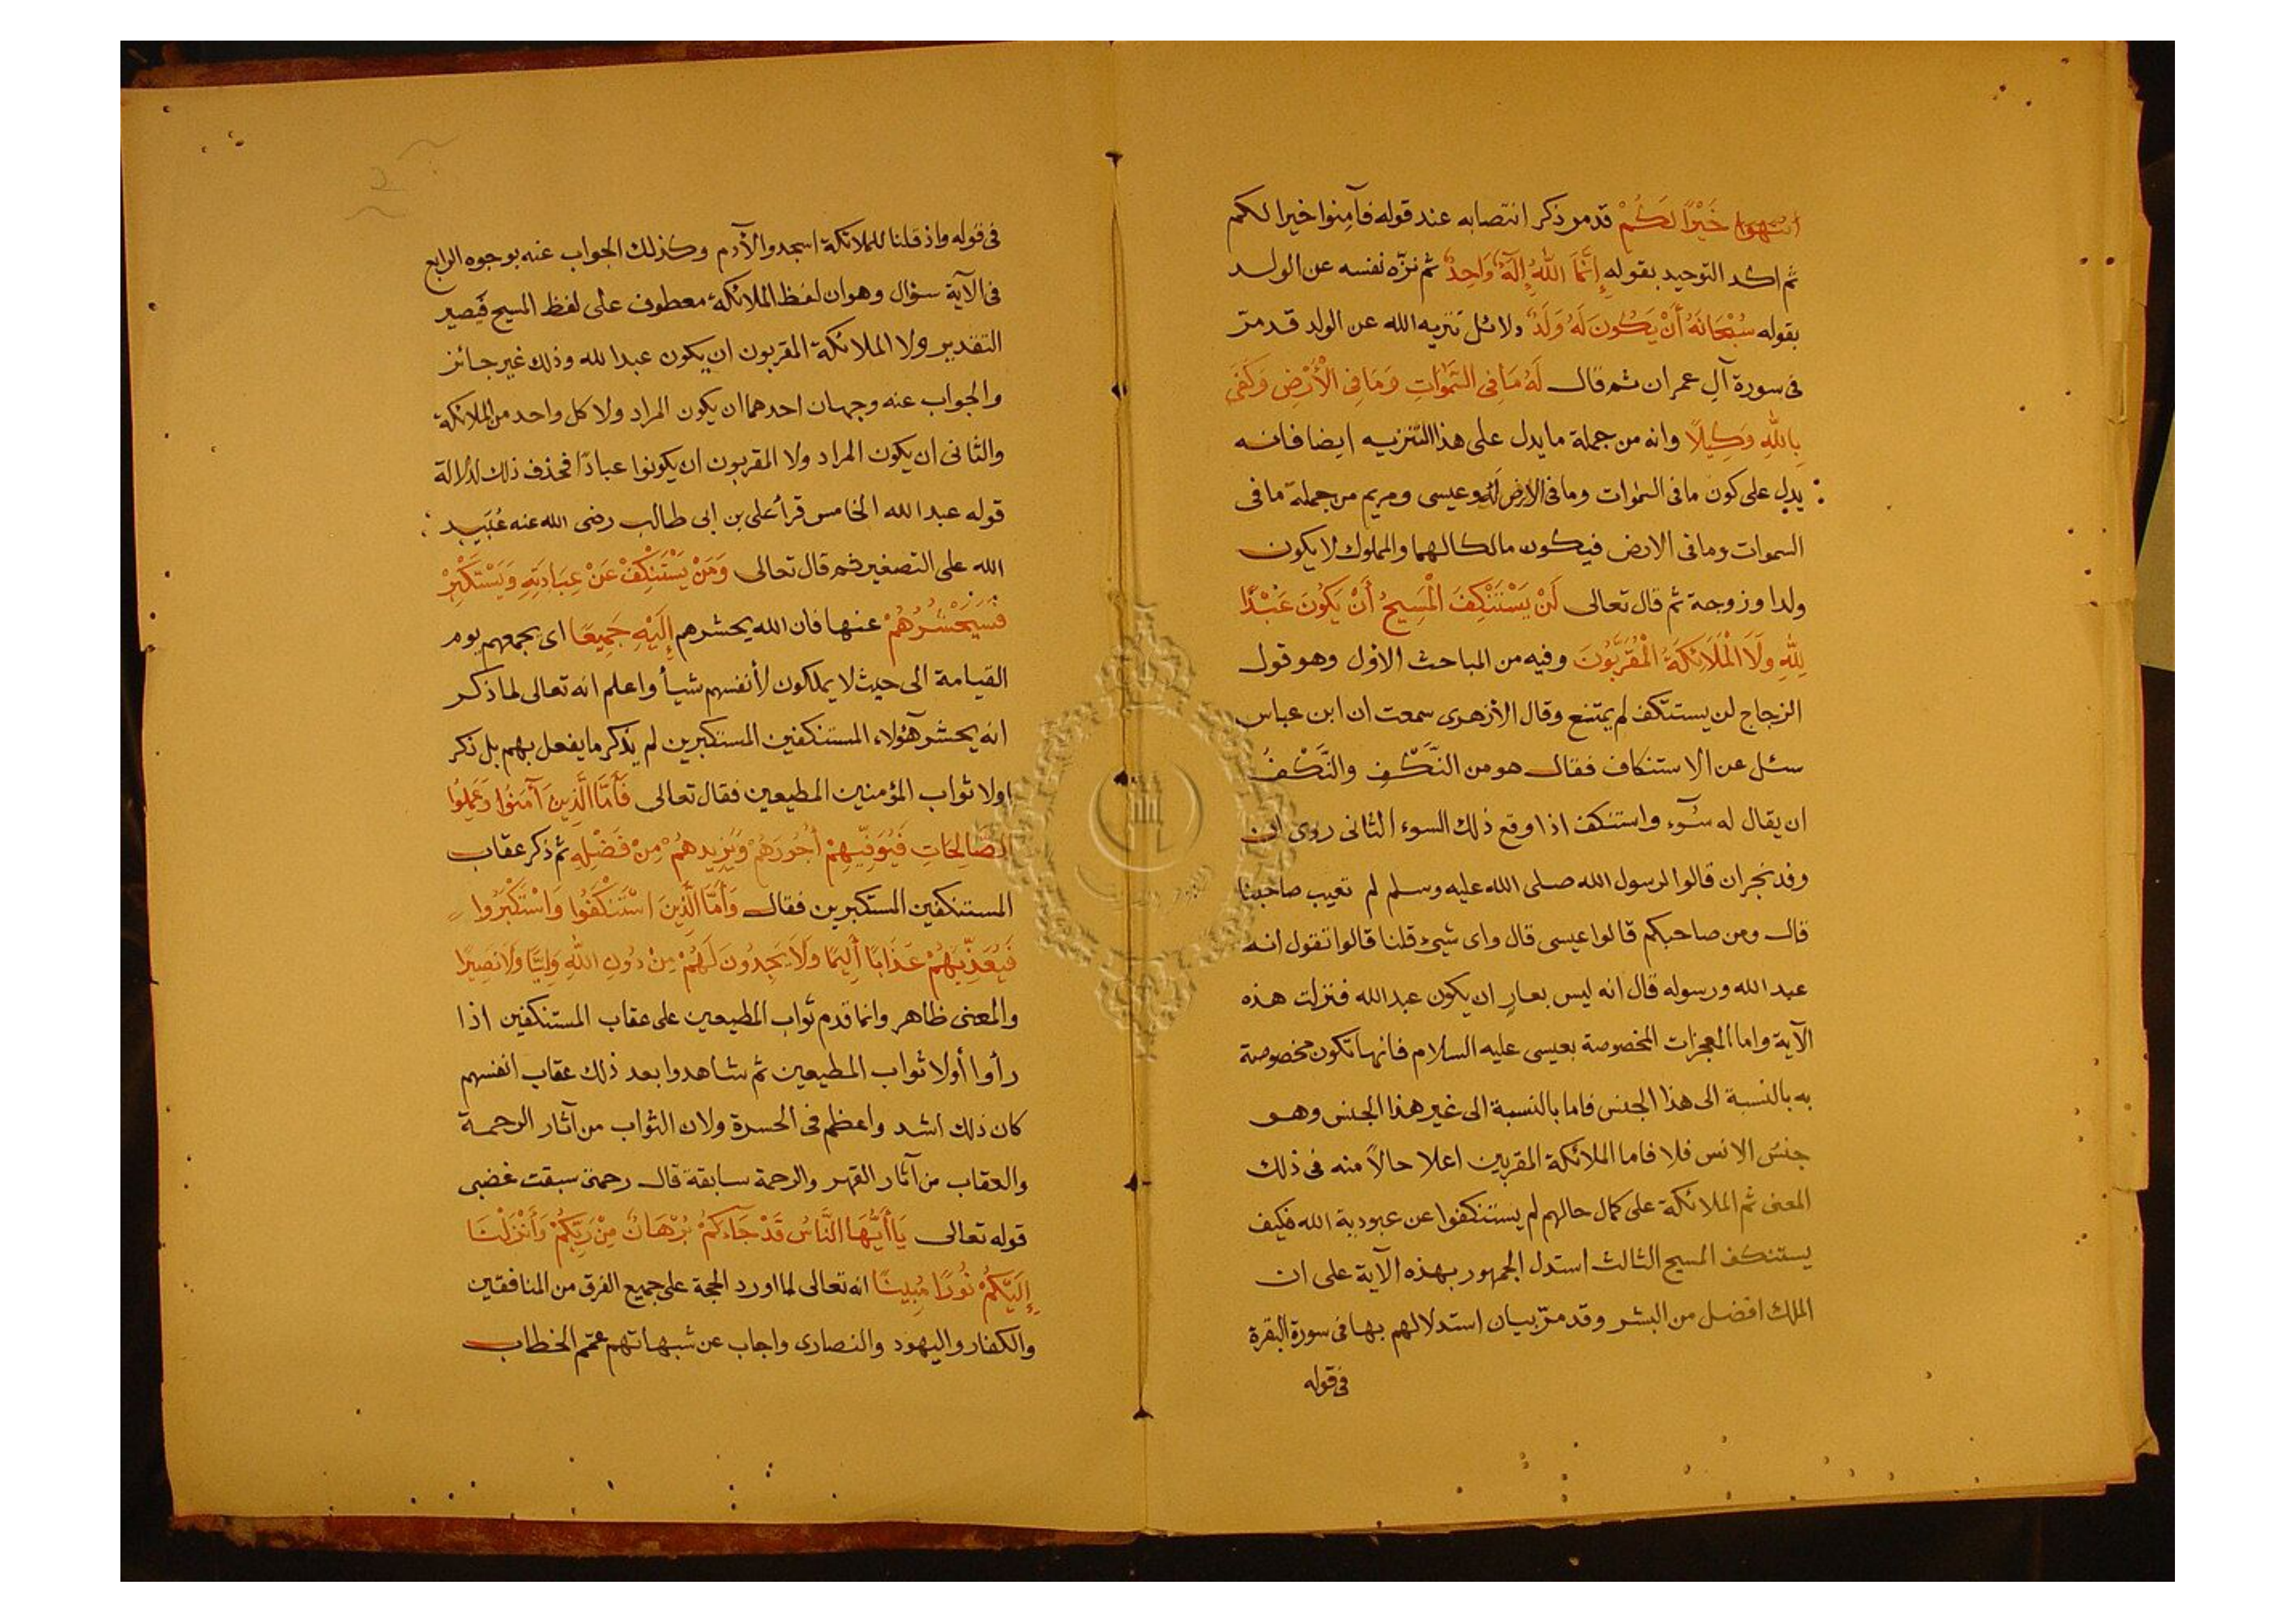 انتهوا خَيْرًا لَكُمْ قد مر ذكر انتصابه عند قوله فآمِنوا خيرا لكم
ثم اكد التوحيد بقوله إِنَّمَا اللهُ إِلَهٌ وَاحِدٌ ثم نزّه نفسه عن الولد
بقوله سُبْحَانَهُ أَنْ يَكُونَ لَهُ وَلَدٌ ودلائل تنزيه الله عن الولد قد مرّ
فى سورة آل عمران ثم قال لَهُ مَا فِى السَّمَوَاتِ وَمَا فِى الْأَرْضِ وَكَفَى
بِاللهِ وَكِيلًا وانه من جملة ما يدل على هذا التنزيه ايضا فانه
يدل على كون ما فى السموات وما فى الارض لَهُ وعيسى ومريم من جملة ما فى
السموات وما فى الارض فيكون مالكا لهما والمملوك لا يكون
ولدا وزوجة ثم قال تعالى لَنْ يَسْتَنْكِفَ الْمَسِيحُ أَنْ يَكُونَ عَبْدًا
لِلّٰهِ وَلَا الْمَلَائِكَةُ الْمُقَرَّبُونَ وفيه من المباحث الاول وهو قول
الزجاج لن يستنكف لم يمتنع وقال الأزهرى سمعت ان ابن عباس
سئل عن الاستنكاف فقال هو من النَّكْفِ والنَّكْفُ
ان يقال له سوٓء واستنكف اذا وقع ذلك السوء الثانى روى ان
وفد نجران قالوا لرسول الله صلى الله عليه وسلم لم تعيب صاحبنا
قال ومن صاحبكم قالوا عيسى قال واى شىء قلنا قالوا تقول انه
عبد الله ورسوله قال انه ليس بعارٍ ان يكون عبد الله فنزلت هذه
الآية واما المعجزات المخصوصة بعيسى عليه السلام فانها تكون مخصوصة
به بالنسبة الى هذا الجنس فاما بالنسبة الى غير هذا الجنس وهو
جنس الانس فلا فاما الملائكة المقربين اعلا حالاً منه فى ذلك
المعنى ثم الملائكة على كمال حالهم لم يستنكفوا عن عبودية الله فكيف
يستنكف المسيح الثالث استدل الجمهور بهذه الآية على ان
الملك افضل من البشر وقد مرّ بيان استدلالهم بها فى سورة البقرة
فى قوله
فى قوله واذ قلنا للملائكة اسجدوا لآدم وكذلك الجواب عنه بوجوه الرابع
فى الآية سؤال وهو ان لفظ الملائكة معطوف على لفظ المسيح فيصير
التقدير ولا الملائكة المقربون ان يكون عبدا لله وذلك غير جائز
والجواب عنه وجهان احدهما ان يكون المراد ولا كل واحد من الملائكة
والثانى ان يكون المراد ولا المقربون ان يكونوا عبادًا فحذف ذلك لدلالة
قوله عبدا لله الخامس قرأ على بن ابى طالب رضى الله عنه عُبَيد
الله على التصغير ثم قال تعالى وَمَنْ يَسْتَنْكِفْ عَنْ عِبَادَتِهِ وَيَسْتَكْبِرْ
فَسَيَحْشُرُهُمْ عنها فان الله يحشرهم إِلَيْهِ جَمِيعًا اى يجمعهم يوم
القيامة الى حيث لا يملكون لأنفسهم شيأ واعلم انه تعالى لما ذكر
انه يحشر هؤلاء المستنكفين المستكبرين لم يذكر ما يفعل بهم بل ذكر
اولا ثواب المؤمنين المطيعين فقال تعالى فَأَمَّا الَّذِينَ آمَنُوا وَعَمِلُوا
الصَّالِحَاتِ فَيُوَفِّيهِمْ أُجُورَهُمْ وَيَزِيدُهُمْ مِنْ فَضْلِهِ ثم ذكر عقاب
المستنكفين المستكبرين فقال وَأَمَّا الَّذِينَ اسْتَنْكَفُوا وَاسْتَكْبَرُوا
فَيُعَذِّبُهُمْ عَذَابًا أَلِيمًا وَلَا يَجِدُونَ لَهُمْ مِنْ دُونِ اللهِ وَلِيًّا وَلَا نَصِيرًا
والمعنى ظاهر وانما قدم ثواب المطيعين على عقاب المستنكفين اذا
رأوا أولا ثواب المطيعين ثم شاهدوا بعد ذلك عقاب انفسهم
كان ذلك اشد واعظم فى الحسرة ولان الثواب من آثار الرحمة
والعقاب من آثار القهر والرحمة سابقة قال رحمتى سبقت غضبى
قوله تعالى يَا أَيُّهَا النَّاسُ قَدْ جَاءَكُمْ بُرْهَانٌ مِنْ رَبِّكُمْ وَأَنْزَلْنَا
إِلَيْكُمْ نُورًا مُبِينًا انه تعالى لما اورد الحجة على جميع الفرق من المنافقين
والكفار واليهود والنصارى واجاب عن شبهاتهم عمّم الخطاب